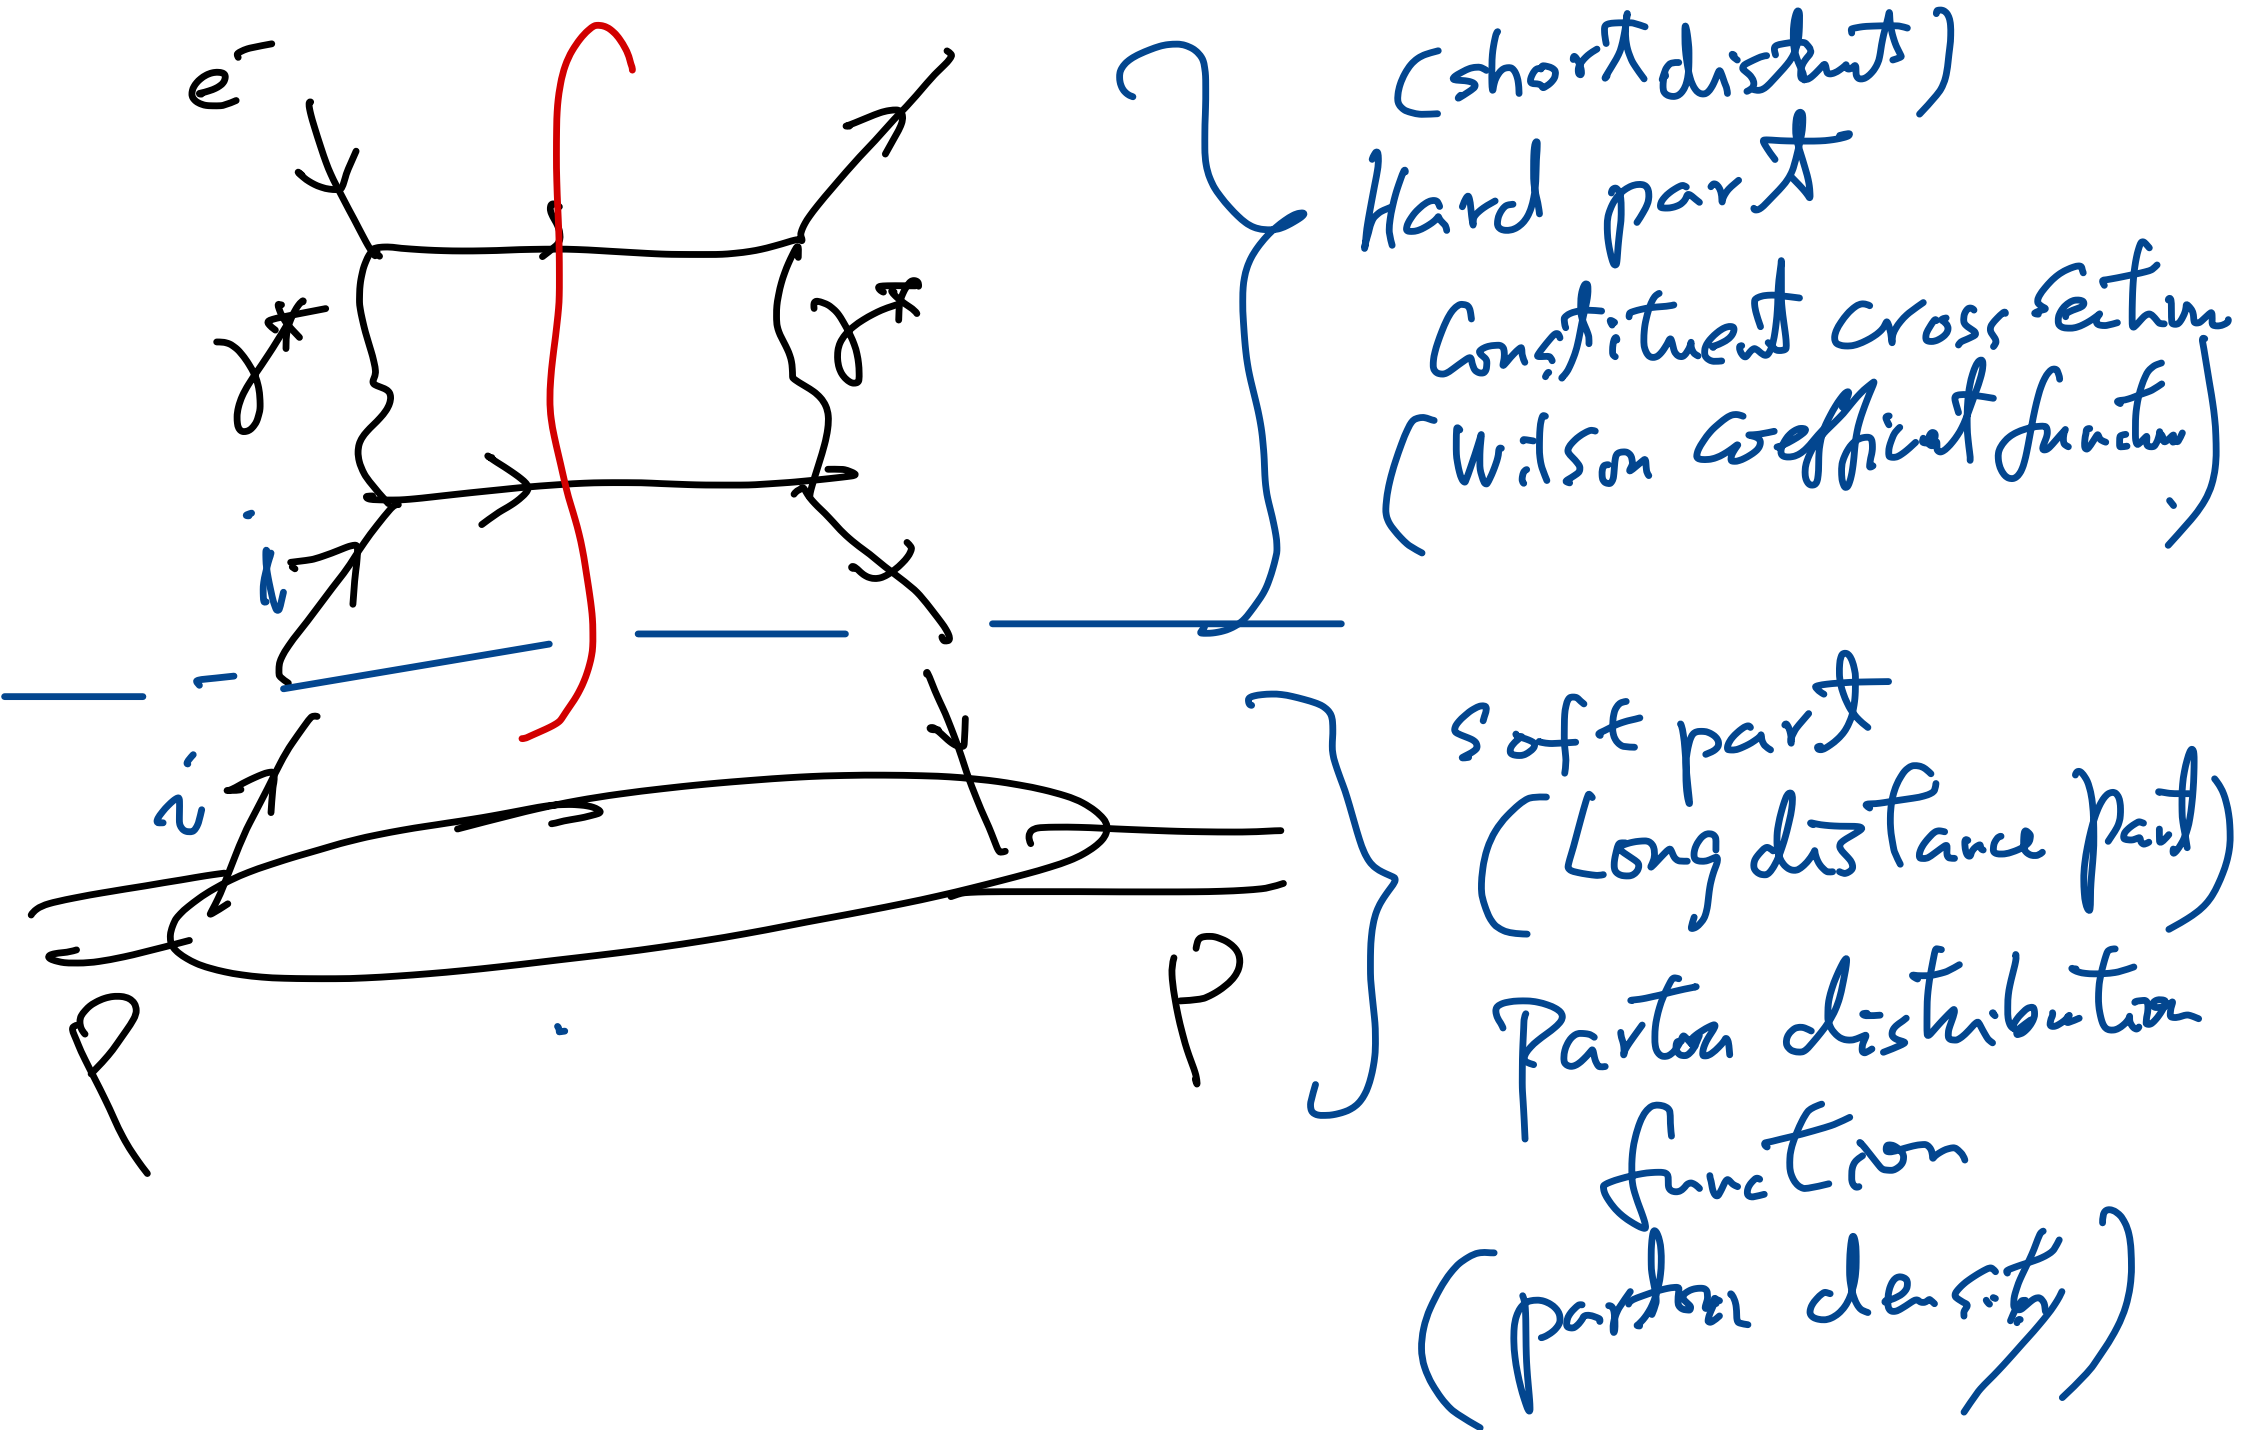 e⁻
(short distants)
Hard part
γ*
γ*
Constituent cross section
(Wilson coefficient function)
i
soft part
(Long distance part)
i
P
P
Parton distribution
function
(parton density)